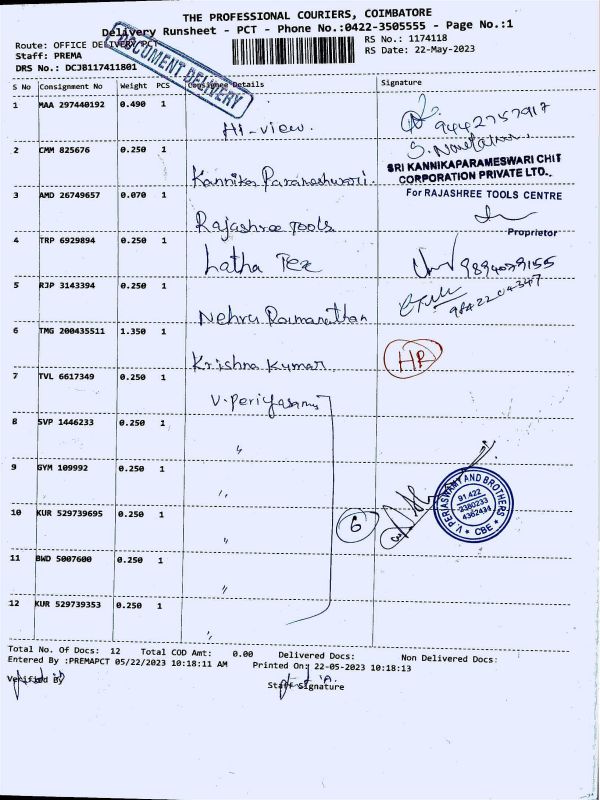 THE PROFESSIONAL COURIERS, COIMBATORE
Delivery Runsheet - PCT - Phone No.:0422-3505555 - Page No.:1
Route: OFFICE DELIVERY PCT
RS No.: 1174118
Staff: PREMA
RS Date: 22-May-2023
DRS No.: DCJB117411801
DOCUMENT DELIVERY
S No Consignment No Weight PCS Consignee Details Signature
1 MAA 297440192 0.490 1 Hi-view. 9442757917
2 CMM 825676 0.250 1 Kannika Parameshwari.
SRI KANNIKAPARAMESWARI CHIT
CORPORATION PRIVATE LTD.,
3 AMD 26749657 0.070 1 Rajashree Tools
For RAJASHREE TOOLS CENTRE
Proprietor
4 TRP 6929894 0.250 1 Latha Tex 9894079155
5 RJP 3143394 0.250 1 Nehru Ramanathan 9842204347
6 TMG 200435511 1.350 1 Krishna Kumar HR
7 TVL 6617349 0.250 1 V. Periyasamy
8 SVP 1446233 0.250 1 "
9 GYM 109992 0.250 1 "
10 KUR 529739695 0.250 1 " 6
V. PERIASWAMY AND BROTHERS
91 422
2380233
4362434
* CBE *
11 BWD 5007600 0.250 1 "
12 KUR 529739353 0.250 1 "
Total No. Of Docs: 12 Total COD Amt: 0.00 Delivered Docs: Non Delivered Docs:
Entered By :PREMAPCT 05/22/2023 10:18:11 AM Printed On: 22-05-2023 10:18:13
Verified By Staff Signature